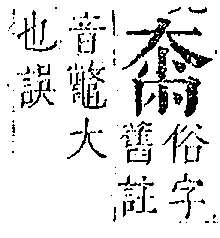 俗字
舊註
音鼈大
也誤